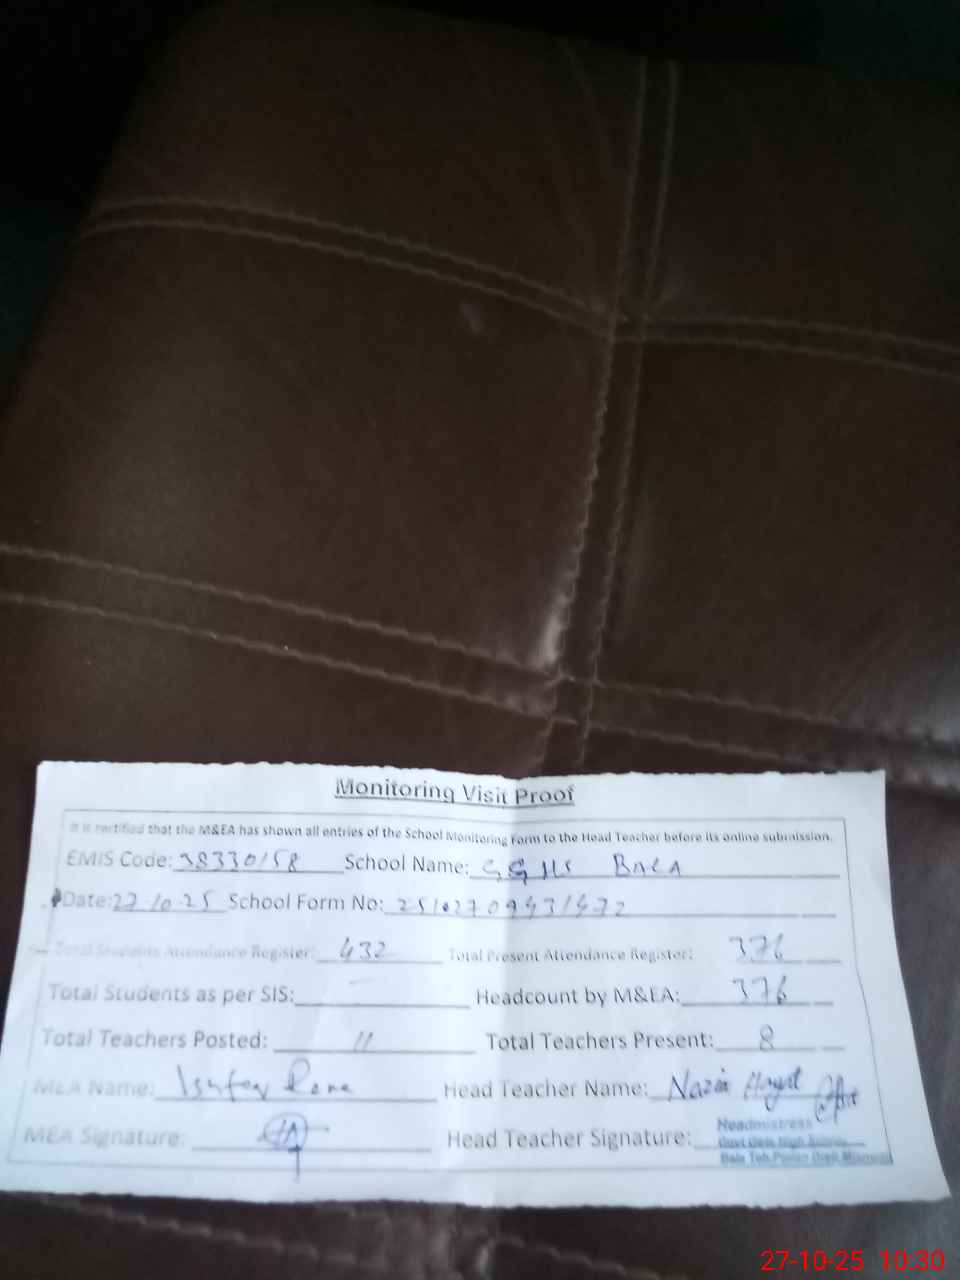 Monitoring Visit Proof
It is certified that the M&EA has shown all entries of the School Monitoring Form to the Head Teacher before its online submission.
EMIS Code: 38330158 School Name: GGHS BALA
Date: 27-10-25 School Form No: 25102709431472
Total Students Attendance Register: 432 Total Present Attendance Register: 376
Total Students as per SIS: - Headcount by M&EA: 376
Total Teachers Posted: 11 Total Teachers Present: 8
MEA Name: Head Teacher Name: Nazia Hayat
MEA Signature: Head Teacher Signature:
Headmistress
Govt Girls High School
Bala Teh.
27-10-25 10:30